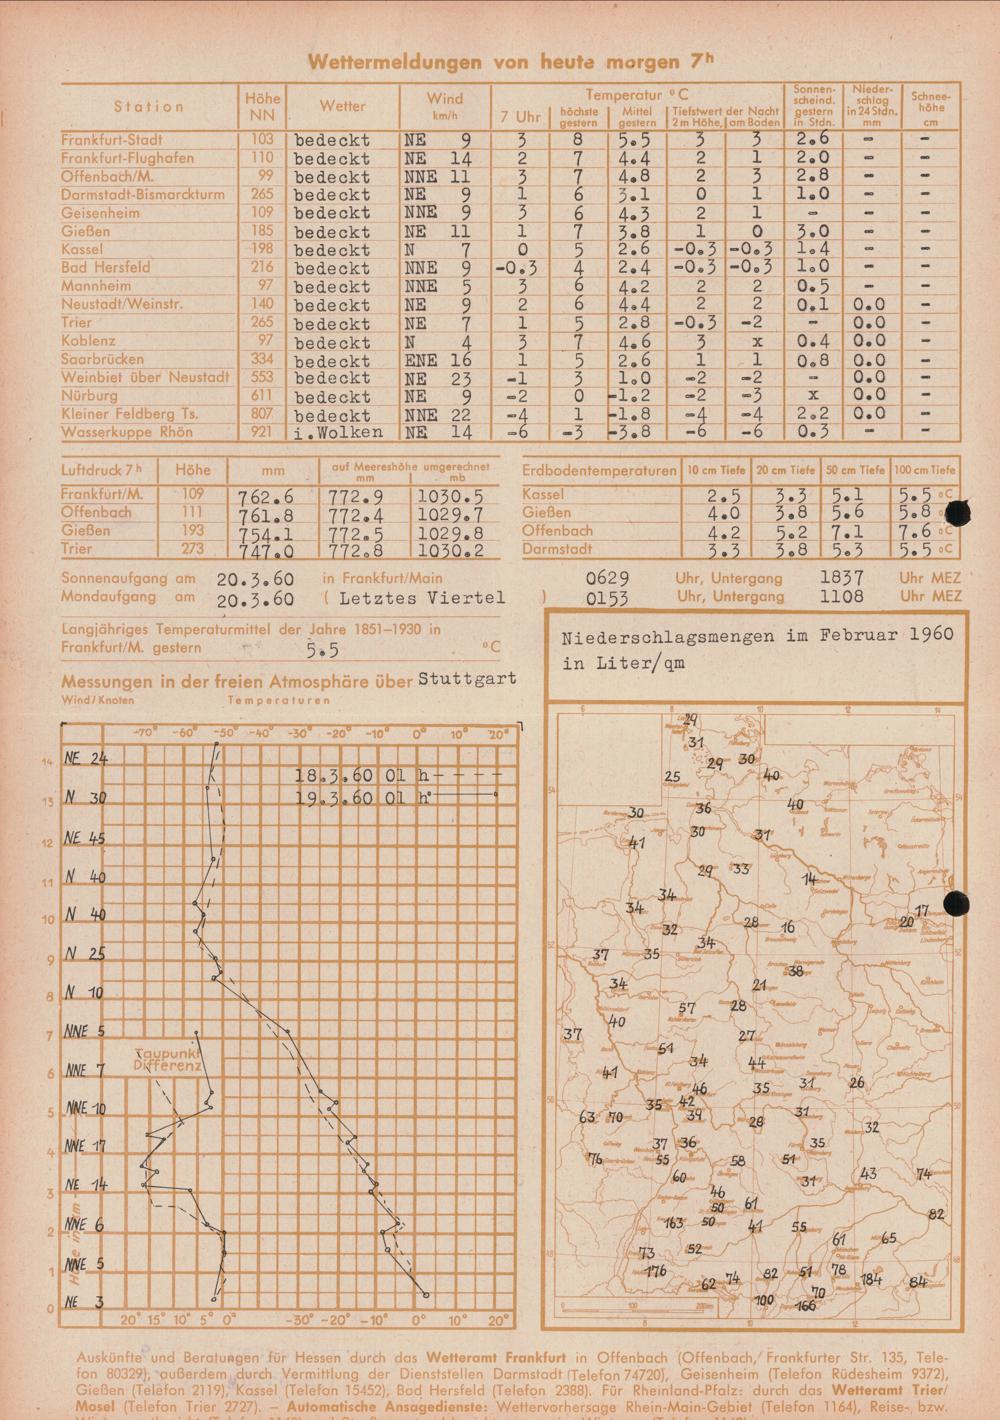 Wettermeldungen von heute morgen 7h
Station Höhe NN Wetter Wind km/h Temperatur °C Sonnenscheind. gestern in Stdn. Niederschlag in 24 Stdn. mm Schneehöhe cm
7 Uhr höchste gestern Mittel gestern Tiefstwert der Nacht 2 m Höhe, am Boden
Frankfurt-Stadt 103 bedeckt NE 9 3 8 5.5 3 3 2.6 - -
Frankfurt-Flughafen 110 bedeckt NE 14 2 7 4.4 2 1 2.0 - -
Offenbach/M. 99 bedeckt NNE 11 3 7 4.8 2 3 2.8 - -
Darmstadt-Bismarckturm 265 bedeckt NE 9 1 6 3.1 0 1 1.0 - -
Geisenheim 109 bedeckt NNE 9 3 6 4.3 2 1 - - -
Gießen 185 bedeckt NE 11 1 7 3.8 1 0 3.0 - -
Kassel 198 bedeckt N 7 0 5 2.6 -0.3 -0.3 1.4 - -
Bad Hersfeld 216 bedeckt NNE 9 -0.3 4 2.4 -0.3 -0.3 1.0 - -
Mannheim 97 bedeckt NNE 5 3 6 4.2 2 2 0.5 - -
Neustadt/Weinstr. 140 bedeckt NE 9 2 6 4.4 2 2 0.1 0.0 -
Trier 265 bedeckt NE 7 1 5 2.8 -0.3 -2 - 0.0 -
Koblenz 97 bedeckt N 4 3 7 4.6 3 x 0.4 0.0 -
Saarbrücken 334 bedeckt ENE 16 1 5 2.6 1 1 0.8 0.0 -
Weinbiet über Neustadt 553 bedeckt NE 23 -1 3 1.0 -2 -2 - 0.0 -
Nürburg 611 bedeckt NE 9 -2 0 -1.2 -2 -3 x 0.0 -
Kleiner Feldberg Ts. 807 bedeckt NNE 22 -4 1 -1.8 -4 -4 2.2 0.0 -
Wasserkuppe Rhön 921 i.Wolken NE 14 -6 -3 -3.8 -6 -6 0.3 - -
Luftdruck 7h Höhe mm auf Meereshöhe umgerechnet mm mb
Frankfurt/M. 109 762.6 772.9 1030.5
Offenbach 111 761.8 772.4 1029.7
Gießen 193 754.1 772.5 1029.8
Trier 273 747.0 772.8 1030.2
Erdbodentemperaturen 10 cm Tiefe 20 cm Tiefe 50 cm Tiefe 100 cm Tiefe
Kassel 2.5 3.3 5.1 5.5 °C
Gießen 4.0 3.8 5.6 5.8 °C
Offenbach 4.2 5.2 7.1 7.6 °C
Darmstadt 3.3 3.8 5.3 5.5 °C
Sonnenaufgang am 20.3.60 in Frankfurt/Main 0629 Uhr, Untergang 1837 Uhr MEZ
Mondaufgang am 20.3.60 ( Letztes Viertel ) 0153 Uhr, Untergang 1108 Uhr MEZ
Langjähriges Temperaturmittel der Jahre 1851–1930 in
Frankfurt/M. gestern 5.5 °C
Messungen in der freien Atmosphäre über Stuttgart
Wind/Knoten Temperaturen
-70° -60° -50° -40° -30° -20° -10° 0° 10° 20°
18.3.60 01 h
19.3.60 01 h
14 NE 24
13 N 30
12 NE 45
11 N 40
10 N 40
9 N 25
8 N 10
7 NNE 5
Taupunkt
Differenz
6 NNE 7
5 NNE 10
4 NNE 17
3 NE 14
2 NNE 6
1 NNE 5
0 NE 3
Höhe in km
20° 15° 10° 5° 0° -30° -20° -10° 0° 10° 20°
Niederschlagsmengen im Februar 1960
in Liter/qm
6 8 10 12 14
29
31
29 30
25 40
30 36 40
41 30 31
29 33
14
34 34
17
28 16 20
32
34
37 35
38
34 21
57 28
40
37 27
51
34 44
41
46 35 31 26
35 42
63 70 39 28 31
32
37 36 35
76 55 58 51
60 31 43 74
46
50 61
82
163 50 41 55
61 65
73 52
176 62 74 82 51 78 184 84
70
100 166
0 100 200km
Auskünfte und Beratungen für Hessen durch das Wetteramt Frankfurt in Offenbach (Offenbach, Frankfurter Str. 135, Tele-
fon 80329), außerdem durch Vermittlung der Dienststellen Darmstadt (Telefon 74720), Geisenheim (Telefon Rüdesheim 9372),
Gießen (Telefon 2119), Kassel (Telefon 15452), Bad Hersfeld (Telefon 2388). Für Rheinland-Pfalz: durch das Wetteramt Trier/
Mosel (Telefon Trier 2727). – Automatische Ansagedienste: Wettervorhersage Rhein-Main-Gebiet (Telefon 1164), Reise-, bzw.